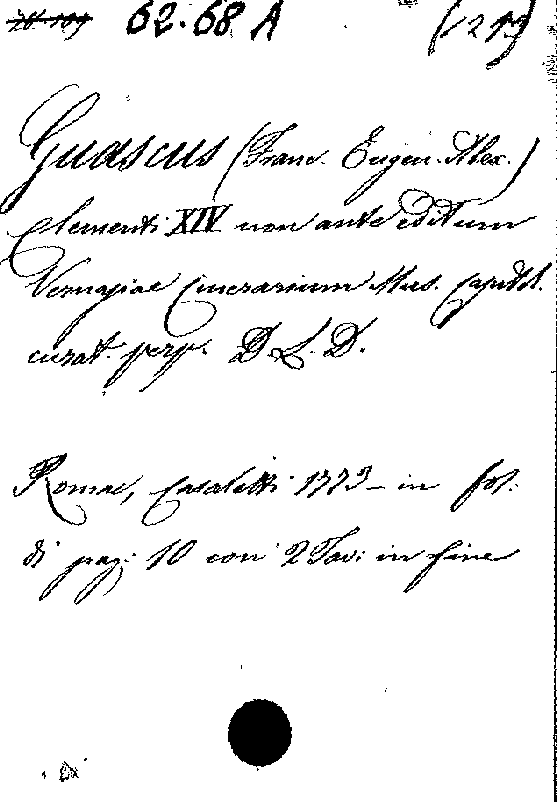 62.68 A (1213)
Guascus (Franc. Eugen. Alex.)
Clementi XIV non ante editum
Vernasiae Cinerarium Mus. Capitol.
curat. perp. D. L. D.
Romae, Casaletti 1773 - in fol.
di pag: 10 con 2 Tav: in fine